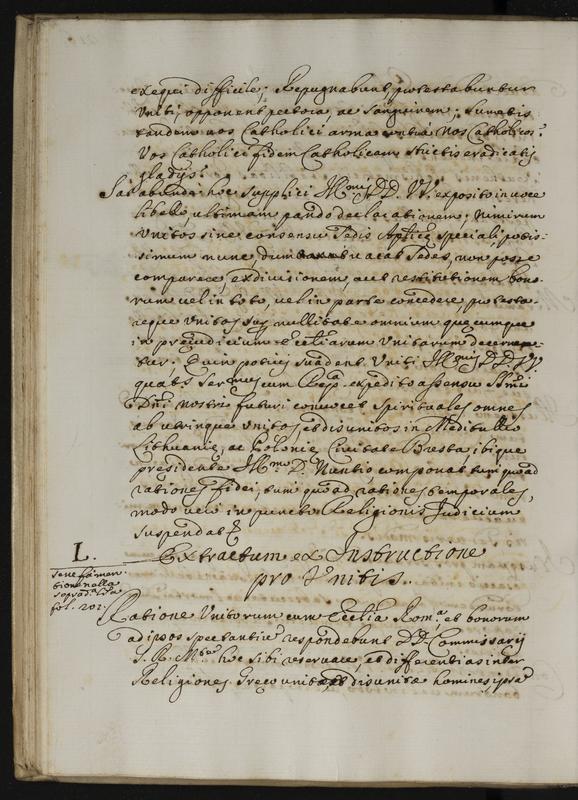 exequi difficile; Repugnabunt, protestabuntur
Uniti, opponent pectora, ac sanguinem; Sumetis
tandem vos Catholici arma contra Nos Catholicos?
Vos Catholici fidem Catholicam strictis eradicatis
gladijs?
hoc supplici Ill.mis DD. VV. exposito in voce
libello, ultimam pando declarationem: Nimirum
Unitos sine consensu Sedis Aplicæ speciali, potis-
simum nunc dum vacat Sedes, non posse
comparere, et divisionem, aut restitutionem bono-
rum vel in toto, vel in parte concedere, protesta-
rique Unitos sup. nullitate omnium quæcumque
in præiudicium Eccliarum Unitarum decernere
tur; Quin potius suadent Uniti Ill.mis DD. VV.
quatẽs Ser.mus cum Rep.ca expedito assensu S.mi
Dñi nostri futuri convocet Spirituales omnes
ab utrinque Unitos, et disunitos in Meditullio
Lithuaniæ, ac Poloniæ Civitate Bresta, ibique
præsidente Ill.mo D. Nuntio componat tum quoad
rationes fidei, tum quoad rationes temporales,
modo vero in puncto Religionis Judicium
suspendat &
L.
Extractum ex Instructione
pro Unitis.
tione nella
sopradª.
fol. 202.
Ratione Unitorum cum Ecclia Rom.ª et bonorum
ad ipsos spectantiũ respondebunt DD. Commissarij
S. R. M.tem hoc sibi reservare, et differentias inter
Religiones Græco unitæ, et disunitæ homines, ipsa